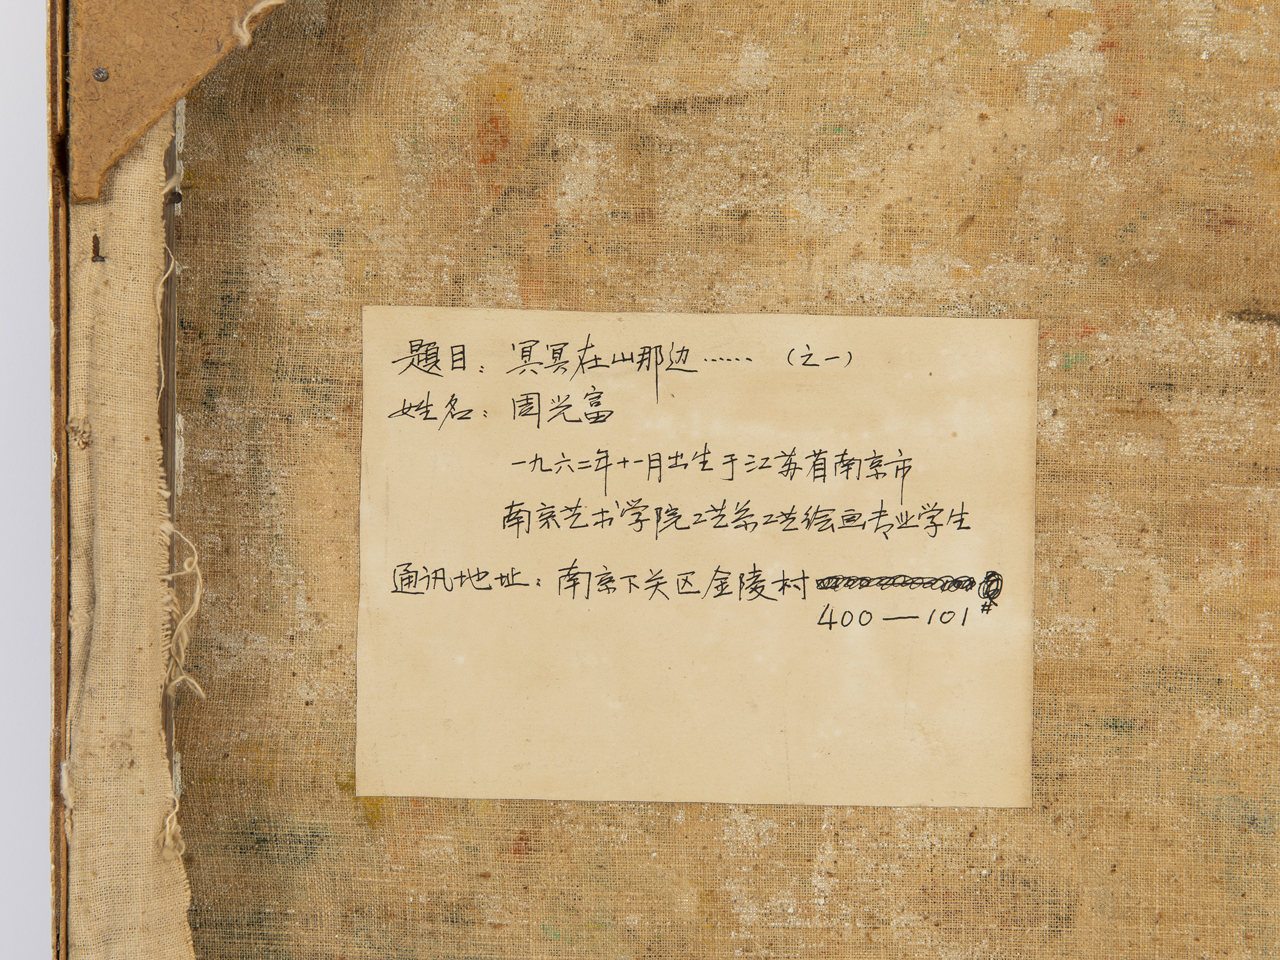 題目：冥冥在山那边……（之一）
姓名：周光富
一九六二年十一月出生于江苏省南京市
南京艺术学院工艺系工艺绘画专业学生
通讯地址：南京下关区金陵村
400—101#